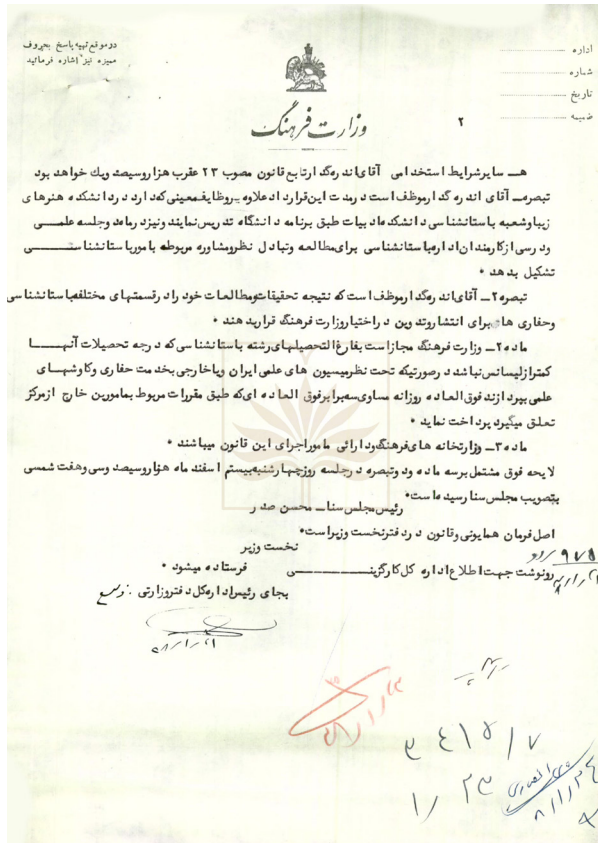 در موقع تهیه پاسخ بحروف
ممیزه نیز اشاره فرمائید
اداره
شماره
تاریخ
ضمیمه
وزارت فرهنگ
۲
هـ سایر شرایط استخدامی آقای اندره گدار تابع قانون مصوب ۲۳ عقرب هزار و سیصد ویك خواهد بود
تبصره ـ آقای اندره گدار موظف است در مدت این قرارداد علاوه بر وظایف معینی که دارد در دانشکده هنرهای
زیبا و شعبه باستانشناسی دانشکده ادبیات طبق برنامه دانشگاه تدریس نمایند و نیز در ماه دو جلسه علمی
و درسی از کارمندان اداره باستانشناسی برای مطالعه و تبادل نظر و مشاوره مربوطه بامور باستانشناسی
تشکیل بدهد ٠
تبصره ۲ ـ آقای اندره گدار موظف است که نتیجه تحقیقات و مطالعات خود را در قسمتهای مختلفه باستانشناسی
و حفاری ها برای انتشار و تدوین در اختیار وزارت فرهنگ قرار بدهند ٠
ماده ۲ ـ وزارت فرهنگ مجاز است بفارغ التحصیلهای رشته باستانشناسی که درجه تحصیلات آنها
کمتر از لیسانس نباشد در صورتیکه تحت نظر میسیون های علمی ایران و یا خارجی بخدمت حفاری و کاوشهای
علمی بپردازند فوق العاده روزانه مساوی سه برابر فوق العاده ای که طبق مقررات مربوط بمامورین خارج از مرکز
تعلق میگیرد پرداخت نماید ٠
ماده ۳ ـ وزارتخانه های فرهنگ و دارائی مامور اجرای این قانون میباشند ٠
لایحه فوق مشتمل بر سه ماده و دو تبصره در جلسه روز چهارشنبه بیستم اسفند ماه هزار و سیصد و سی و هفت شمسی
بتصویب مجلس سنا رسیده است ٠
رئیس مجلس سنا ـ محسن صدر
اصل فرمان همایونی و قانون در دفتر نخست وزیر است ٠
نخست وزیر
رونوشت جهت اطلاع اداره کل کارگزینی فرستاده میشود ٠
بجای رئیس اداره کل دفتر وزارتی